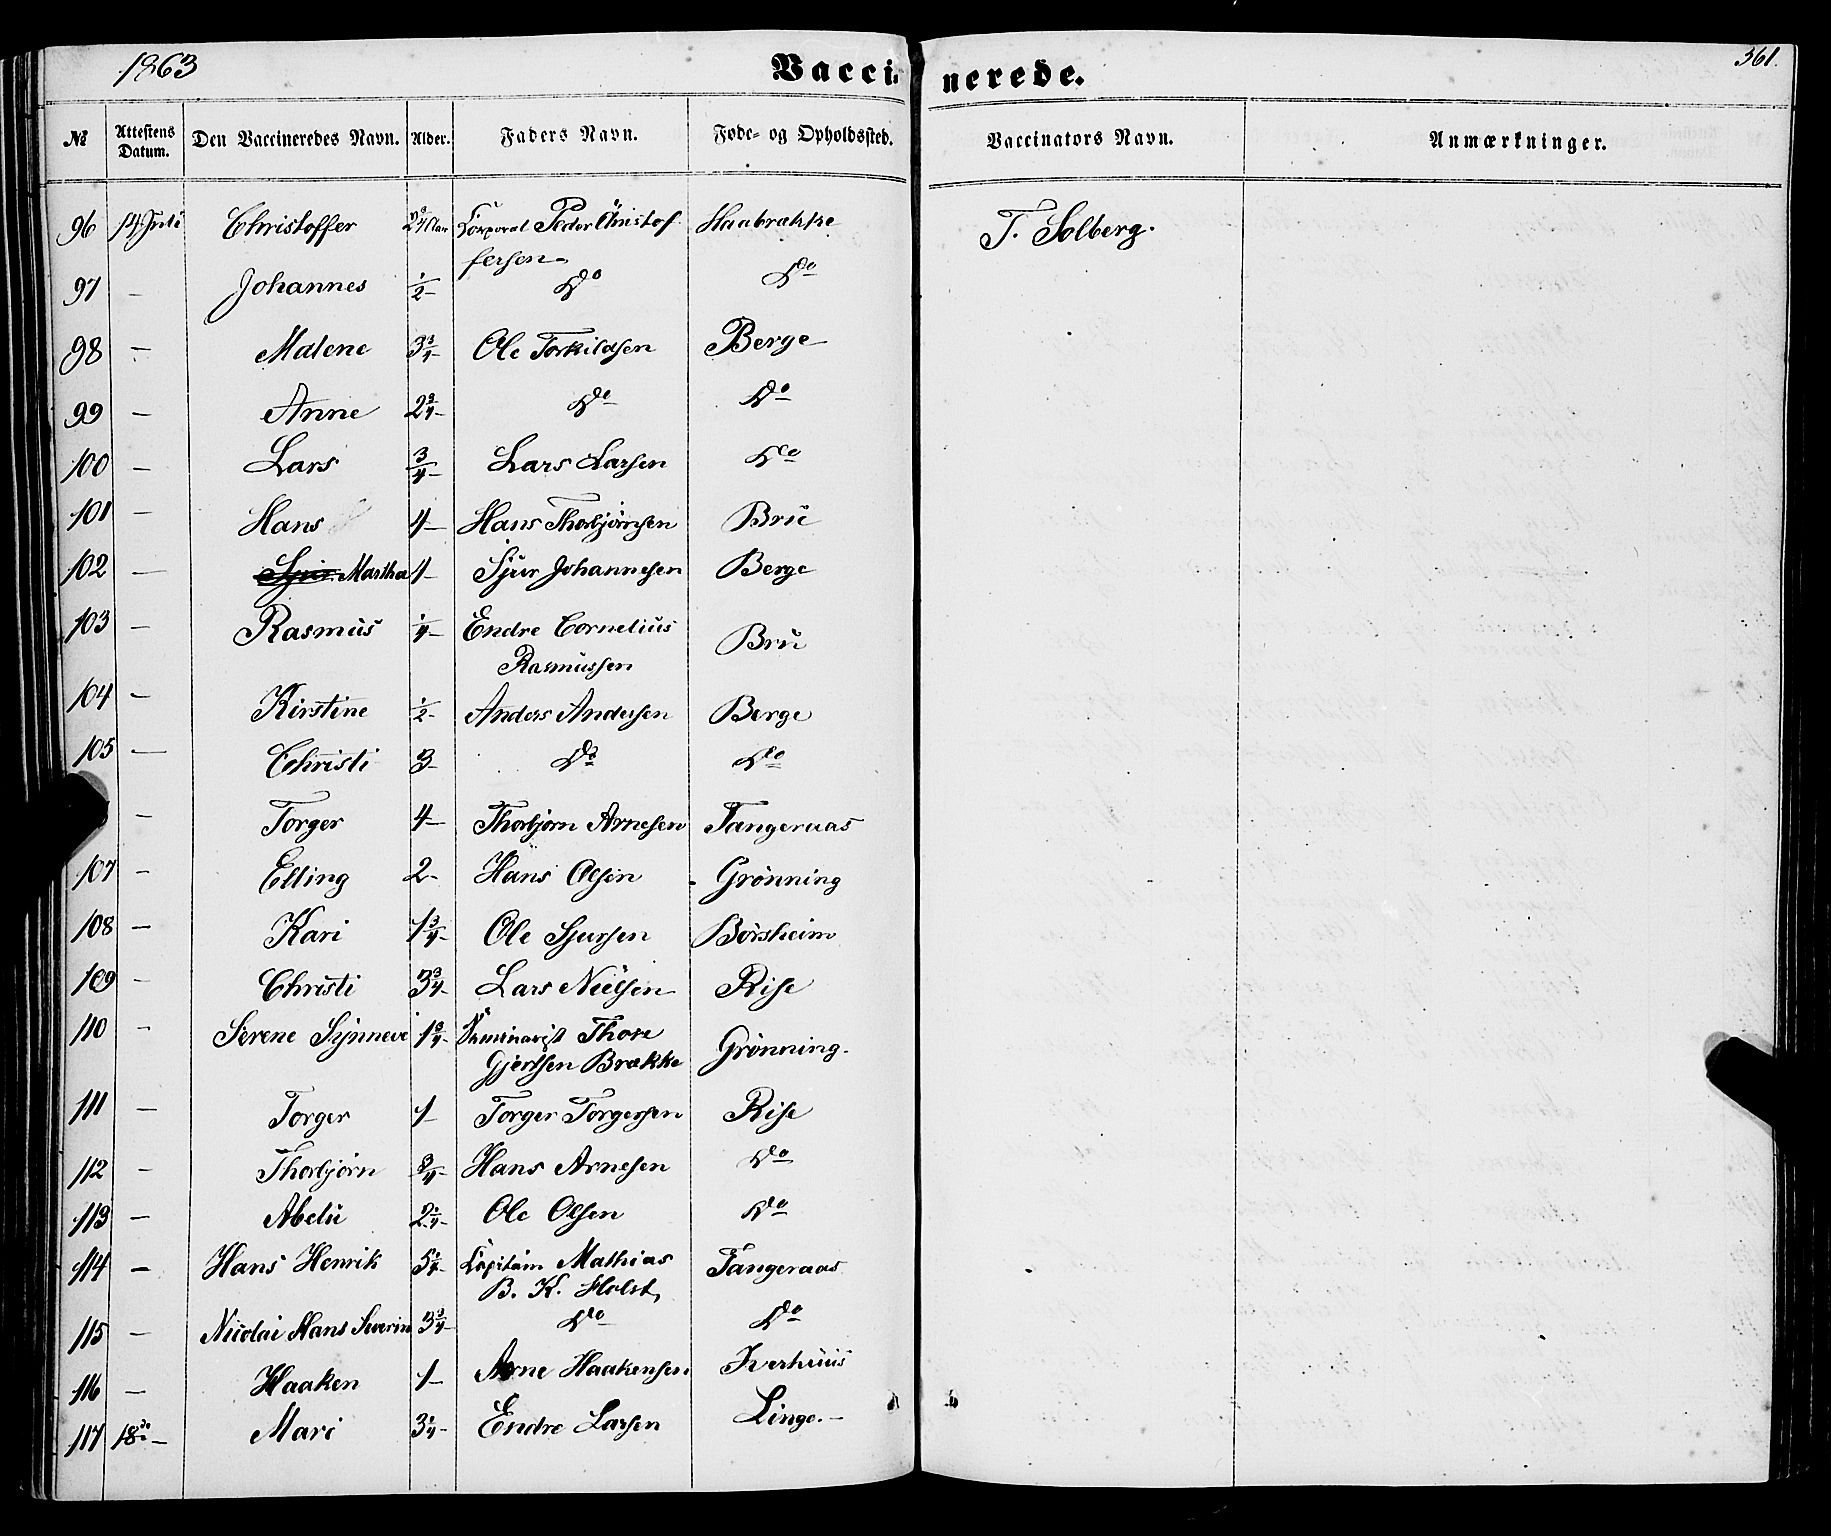 1863 Vaccinerede. 361.
№ Attestens Datum. Den Vaccineredes Navn. Alder. Faders Navn. Føde- og Opholdssted. Vaccinators Navn. Anmærkninger.
96 14 Juli Christoffer 2¾ Korporal Peder Christof- Haabrække T. Solberg.
fersen
97 — Johannes ½ Do Do
98 — Malene 3¾ Ole Torkildsen Berge
99 — Anne 2¾ Do Do
100 — Lars ¾ Lars Larsen Do
101 — Hans 4 Hans Thorbjörnsen Brü
102 — Sjur Martha 1 Sjur Johannesen Berge
103 — Rasmüs ¼ Endre Cornelius Brü
Rasmüssen
104 — Kirstine ½ Anders Andersen Berge
105 — Christi 3 Do Do
— Torger 4 Thorbjørn Arnesen Tangeraas
107 — Elling 2 Hans Olsen Grønning
108 — Kari 1¾ Ole Sjursen Börsheim
109 — Christi 3¾ Lars Nielsen Rise
110 — Serene Synneve 1¾ Seminarist Thore Grønning.
Gjertsen Brække
111 — Torger 1 Torger Torgersen Rise
112 — Thorbjørn ¾ Hans Arnesen Do
113 — Abelü 2¼ Ole Olsen Do
114 — Hans Henrik 5¼ Kapitain Mathias Tangeraas
B. K. Holst
115 — Nicolai Hans Severin 3¾ Do Do
116 — Haaken 1 Arne Haakensen Iverhuus
117 18de — Mari 3¼ Endre Larsen Linge. —